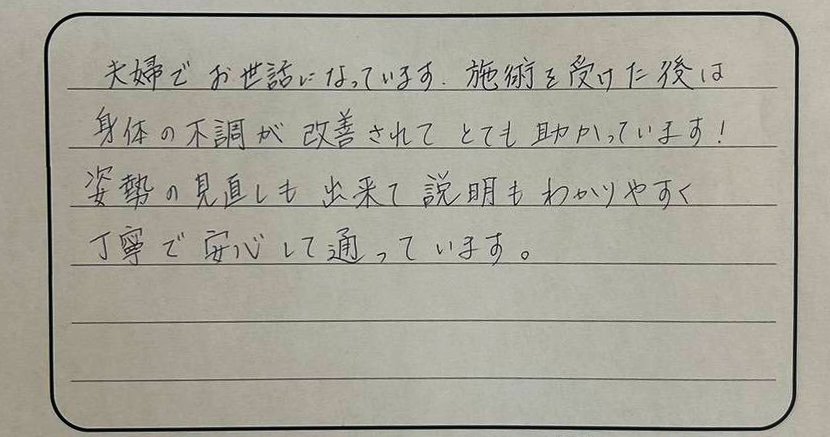 夫婦でお世話になっています. 施術を受けた後は
身体の不調が改善されてとても助かっています!
姿勢の見直しも出来て説明もわかりやすく
丁寧で安心して通っています。